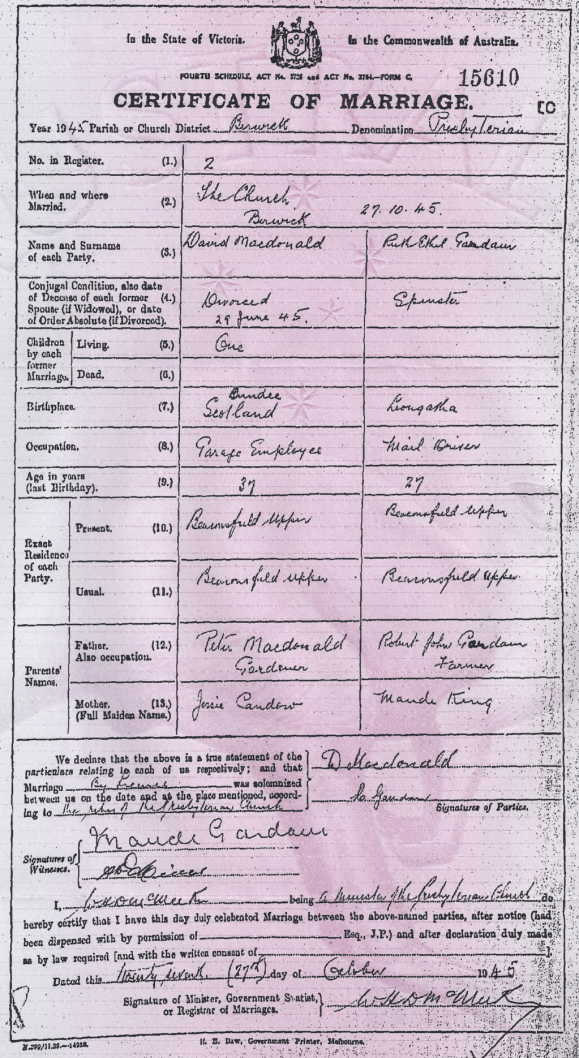 In the State of Victoria. In the Commonwealth of Australia.
FOURTH SCHEDULE, ACT No. 3726 and ACT No. 3764.—FORM C.
15610
CERTIFICATE OF MARRIAGE.
Year 1945 Parish or Church District Berwick Denomination Presbyterian
No. in Register. (1.) 2
When and where Married. (2.) The Church Berwick 27.10.45.
Name and Surname of each Party. (3.) David Macdonald Ruth Ethel Gardam
Conjugal Condition, also date of Decease of each former Spouse (if Widowed), or date of Order Absolute (if Divorced). (4.) Divorced 29 June 45. Spinster
Children by each former Marriage. Living. (5.) One
Dead. (6.)
Birthplace. (7.) Dundee Scotland Leongatha
Occupation. (8.) Garage Employee Mail Driver
Age in years (last Birthday). (9.) 37 27
Exact Residence of each Party. Present. (10.) Beaconsfield Upper Beaconsfield Upper
Usual. (11.) Beaconsfield Upper Beaconsfield Upper
Parents' Names. Father. Also occupation. (12.) Peter Macdonald Gardener Robert John Gardam Farmer
Mother. (Full Maiden Name.) (13.) Jessie Candow Maude King
We declare that the above is a true statement of the
particulars relating to each of us respectively; and that
Marriage By License was solemnized
between us on the date and at the place mentioned, accord-
ing to the rites of the Presbyterian Church
D Macdonald
Gardam
Signatures of Parties.
Maude Gardam
Signatures of Witnesses.
I, being a Minister of the Presbyterian Church do
hereby certify that I have this day duly celebrated Marriage between the above-named parties, after notice (had
been dispensed with by permission of Esq., J.P.) and after declaration duly made
as by law required [and with the written consent of ].
Dated this twenty seventh (27th) day of October 1945
Signature of Minister, Government Statist, or Registrar of Marriages.
H. E. Daw, Government Printer, Melbourne.